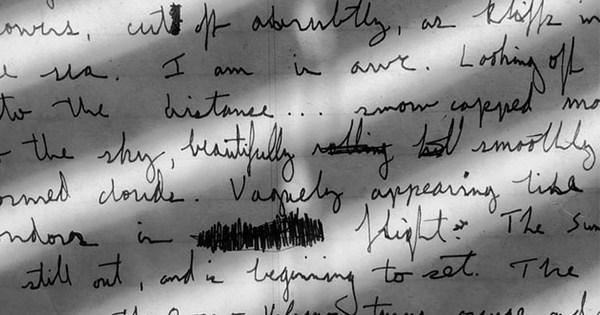 owers, cut off abruptly, as kliffs in
e sea. I am in awe. Looking off
to the distance... snow capped mo
the sky, beautifully rolling but smoothly
ormed clouds. Vaguely appearing like
ondors in flight. The Sun
still out, and is beginning to set. The
the